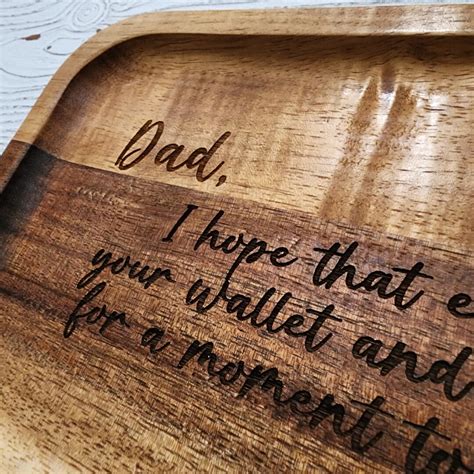 Dad,
I hope that e
your wallet and
for a moment to